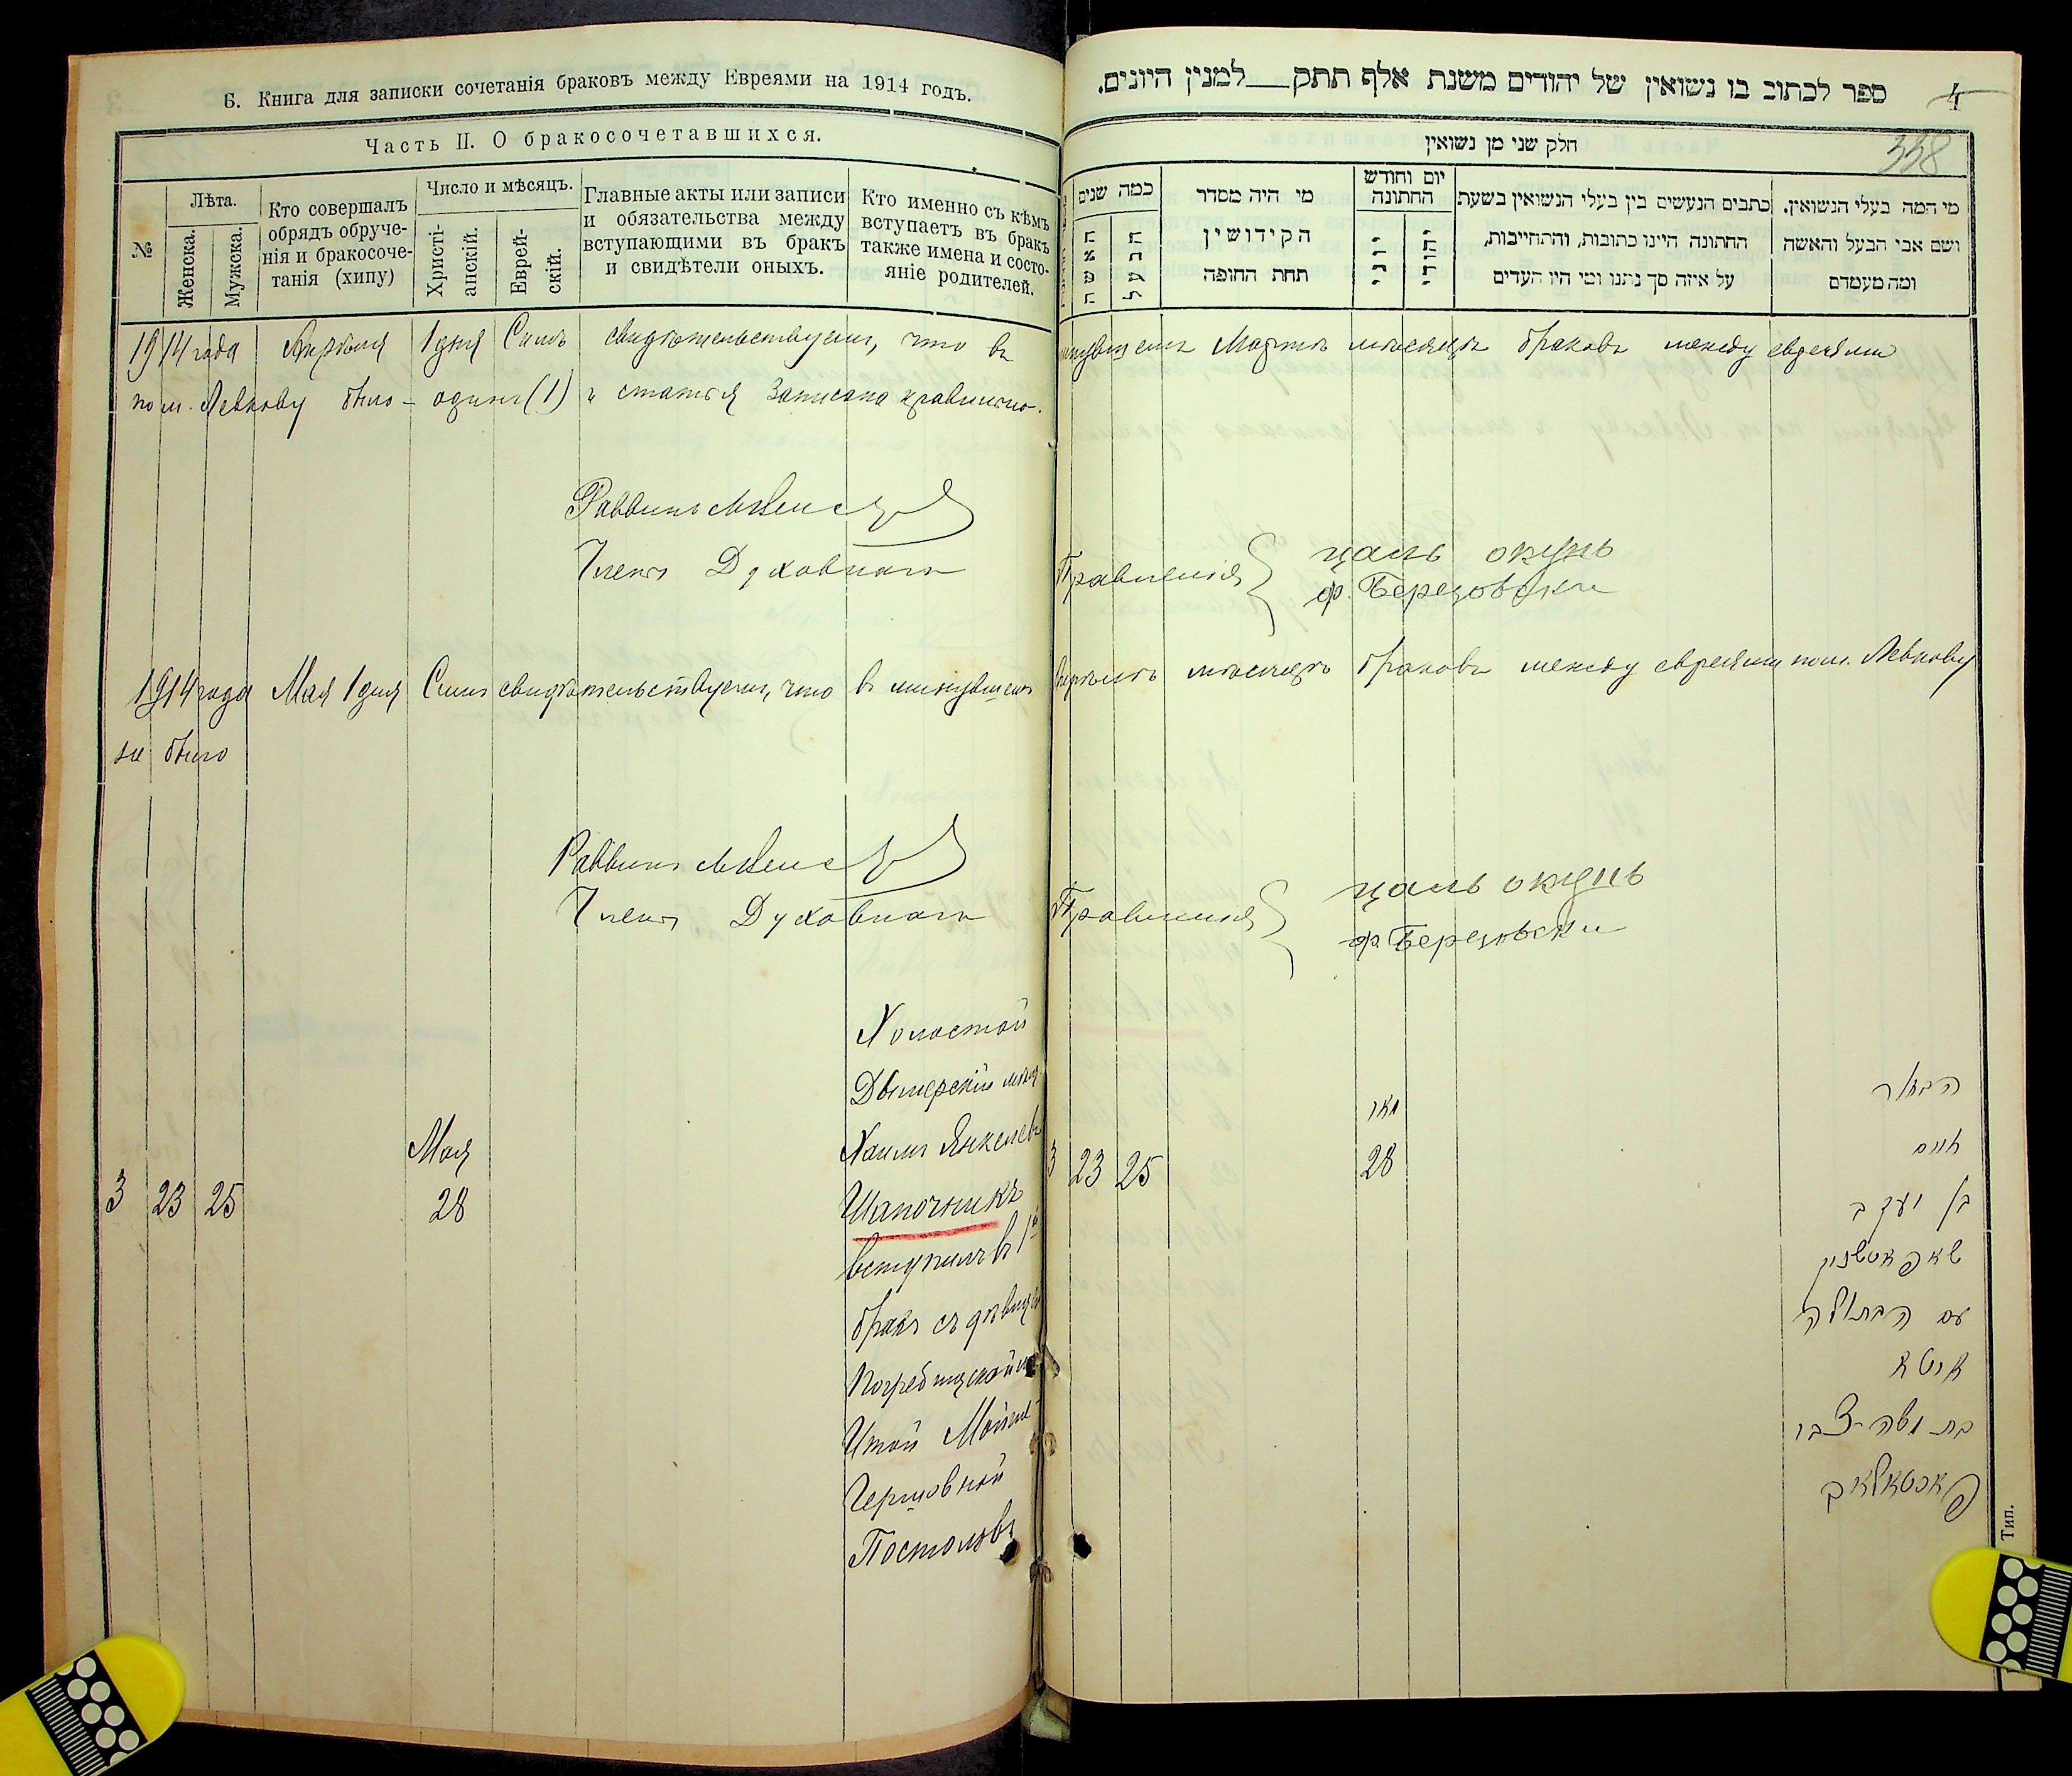 Б. Книга для записки сочетанія браковъ между Евреями на 1914 годъ.
Часть II. О бракосочетавшихся.
№
Лѣта.
Женска.
Мужска.
Кто совершалъ
обрядъ обруче-
нія и бракосоче-
танія (хипу)
Число и мѣсяцъ.
Христі-
анскій.
Еврей-
скій.
Главные акты или записи
и обязательства между
вступающими въ бракъ
и свидѣтели оныхъ.
Кто именно съ кѣмъ
вступаетъ въ бракъ
также имена и состо-
яніе родителей.
ספר לכתוב בו נשואין של יהודים משנת אלף תתק למנין היונים.
4
338
חלק שני מן נשואין
כמה שנים
האשה
הבעל
מי היה מסדר
הקידושין
תחת החופה
יום וחודש
החתונה
יוני
יהודי
כתבים הנעשים בין בעלי הנשואין בשעת
החתונה היינו כתובות, והתחייבות,
על איזה סך נתנו ומי היו העדים
מי המה בעלי הנשואין,
ושם אבי הבעל והאשה
ומה מעמדם
1914 года Апрѣля 1 дня Симъ свидѣтельствуемъ, что въ минувшемъ Мартѣ мѣсяцѣ браковъ между евреями
по м. Левкову было - одинъ (1) и статья записана правильно.
Раввинъ
Члены Духовнаго Правленія
цаль окунь
ф. Березовски
1914 года Мая 1 дня Симъ свидѣтельствуемъ, что въ минувшемъ Апрѣлѣ мѣсяцѣ браковъ между евреями по м. Левкову
не было
Раввинъ
Члены Духовнаго Правленія
цаль окунь
ф. Березовски
Холостой
Дымерскій мѣщ.
Мая
Хаимъ Янкелев
3 23 25 28
Шапочникъ
вступилъ въ 1й
бракъ съ дѣвицей
Погребищской
Итой Мойше
Герцовной
Постоловъ
3 23 25
מאי
28
הבחור
חיים
בן יעקב
שאפאטשניק
עם הבתולה
איטא
בת משה-צבי
פאסטאלאב
Тип.